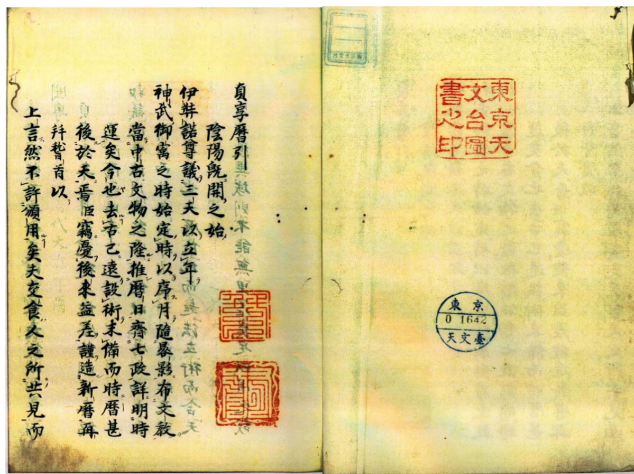 東京天
文台圖
書之印
東京
0 1642
天文臺
貞享暦引
陰陽既開之始
伊弉諾尊議三天以立年
神武御寓之時始定時以序月随晷影布文教
當中古文物之隆推暦日齊七政詳明時
運矣今也去古已遠設術未備而時暦甚
後於天焉臣竊憂後来益差謹造新暦再
拜稽首以
上言然不許頒用矣夫交食人之所共見而